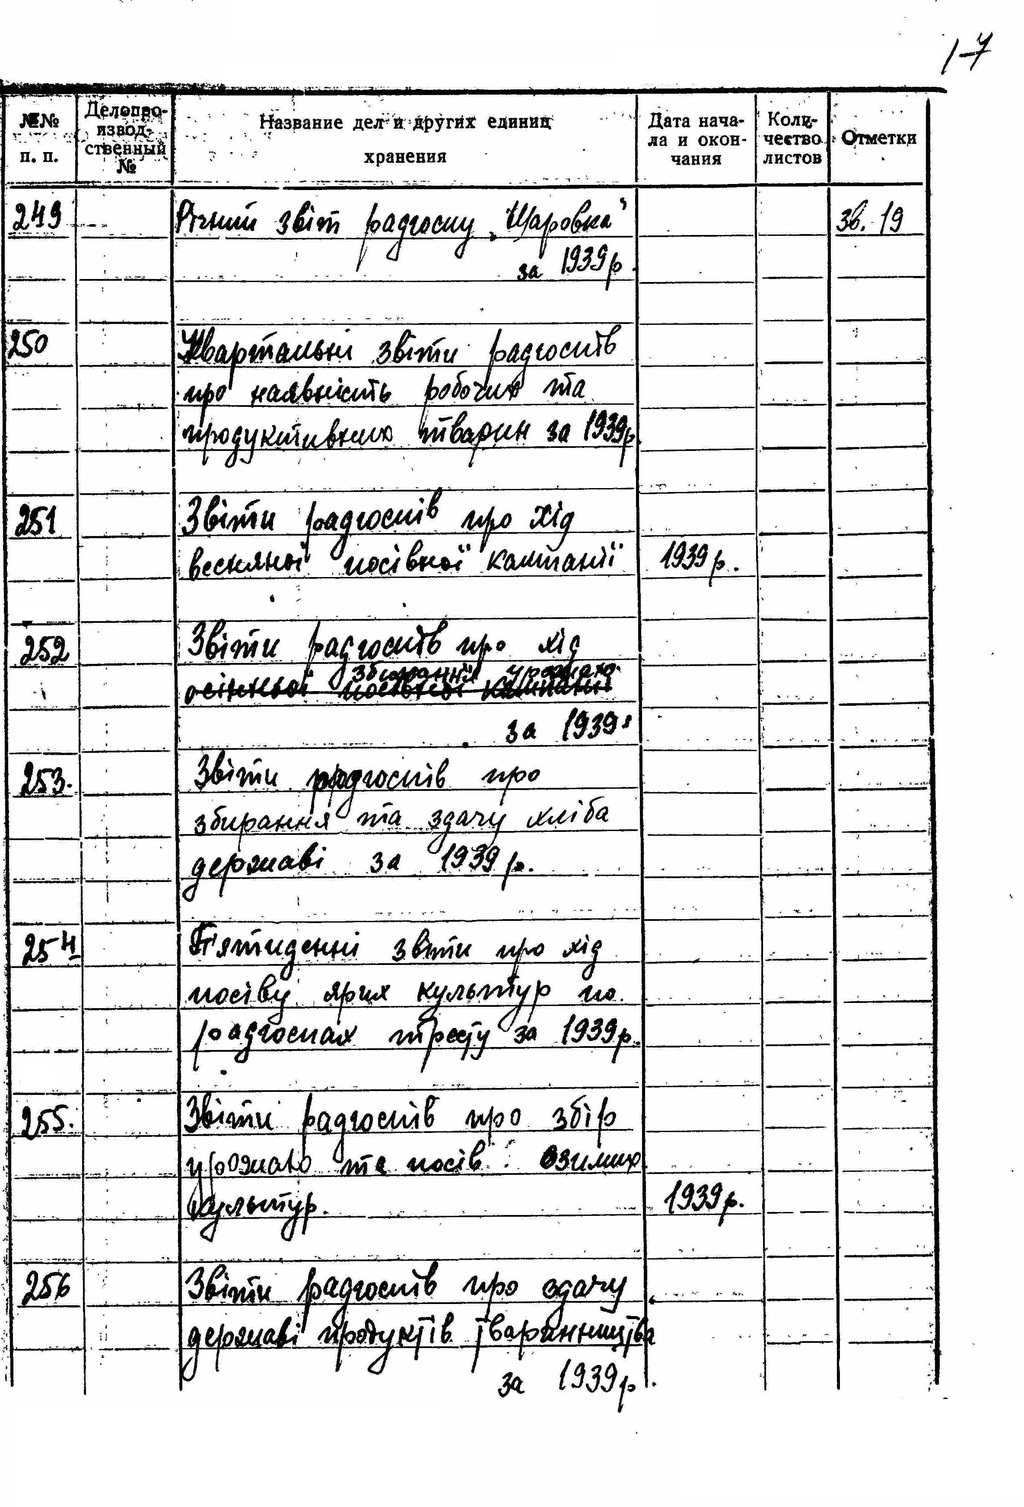 1-7
№№ п. п.
Делопро-
извод-
ственный
№
Название дел и других единиц
хранения
Дата нача-
ла и окон-
чания
Коли-
чество
листов
Отметки
249 Річний звіт радгоспу „Шаровка" зв. 19
за 1939р.
250 Квартальні звіти радгоспів
про наявність робочих та
продуктивних тварин за 1939р
251 Звіти радгоспів про хід
весняної посівної кампанії 1939р.
252 Звіти радгоспів про хід
збирання урожаю
осінньої посівної кампанії
за 1939
253. Звіти радгоспів про
збирання та здачу хліба
державі за 1939р.
254 П'ятиденні звіти про хід
посіву ярих культур по
радгоспах тресту за 1939р.
255. Звіти радгоспів про збір
урожаю та посів озимих
культур. 1939р.
256 Звіти радгоспів про здачу
державі продуктів тваринництва
за 1939р.